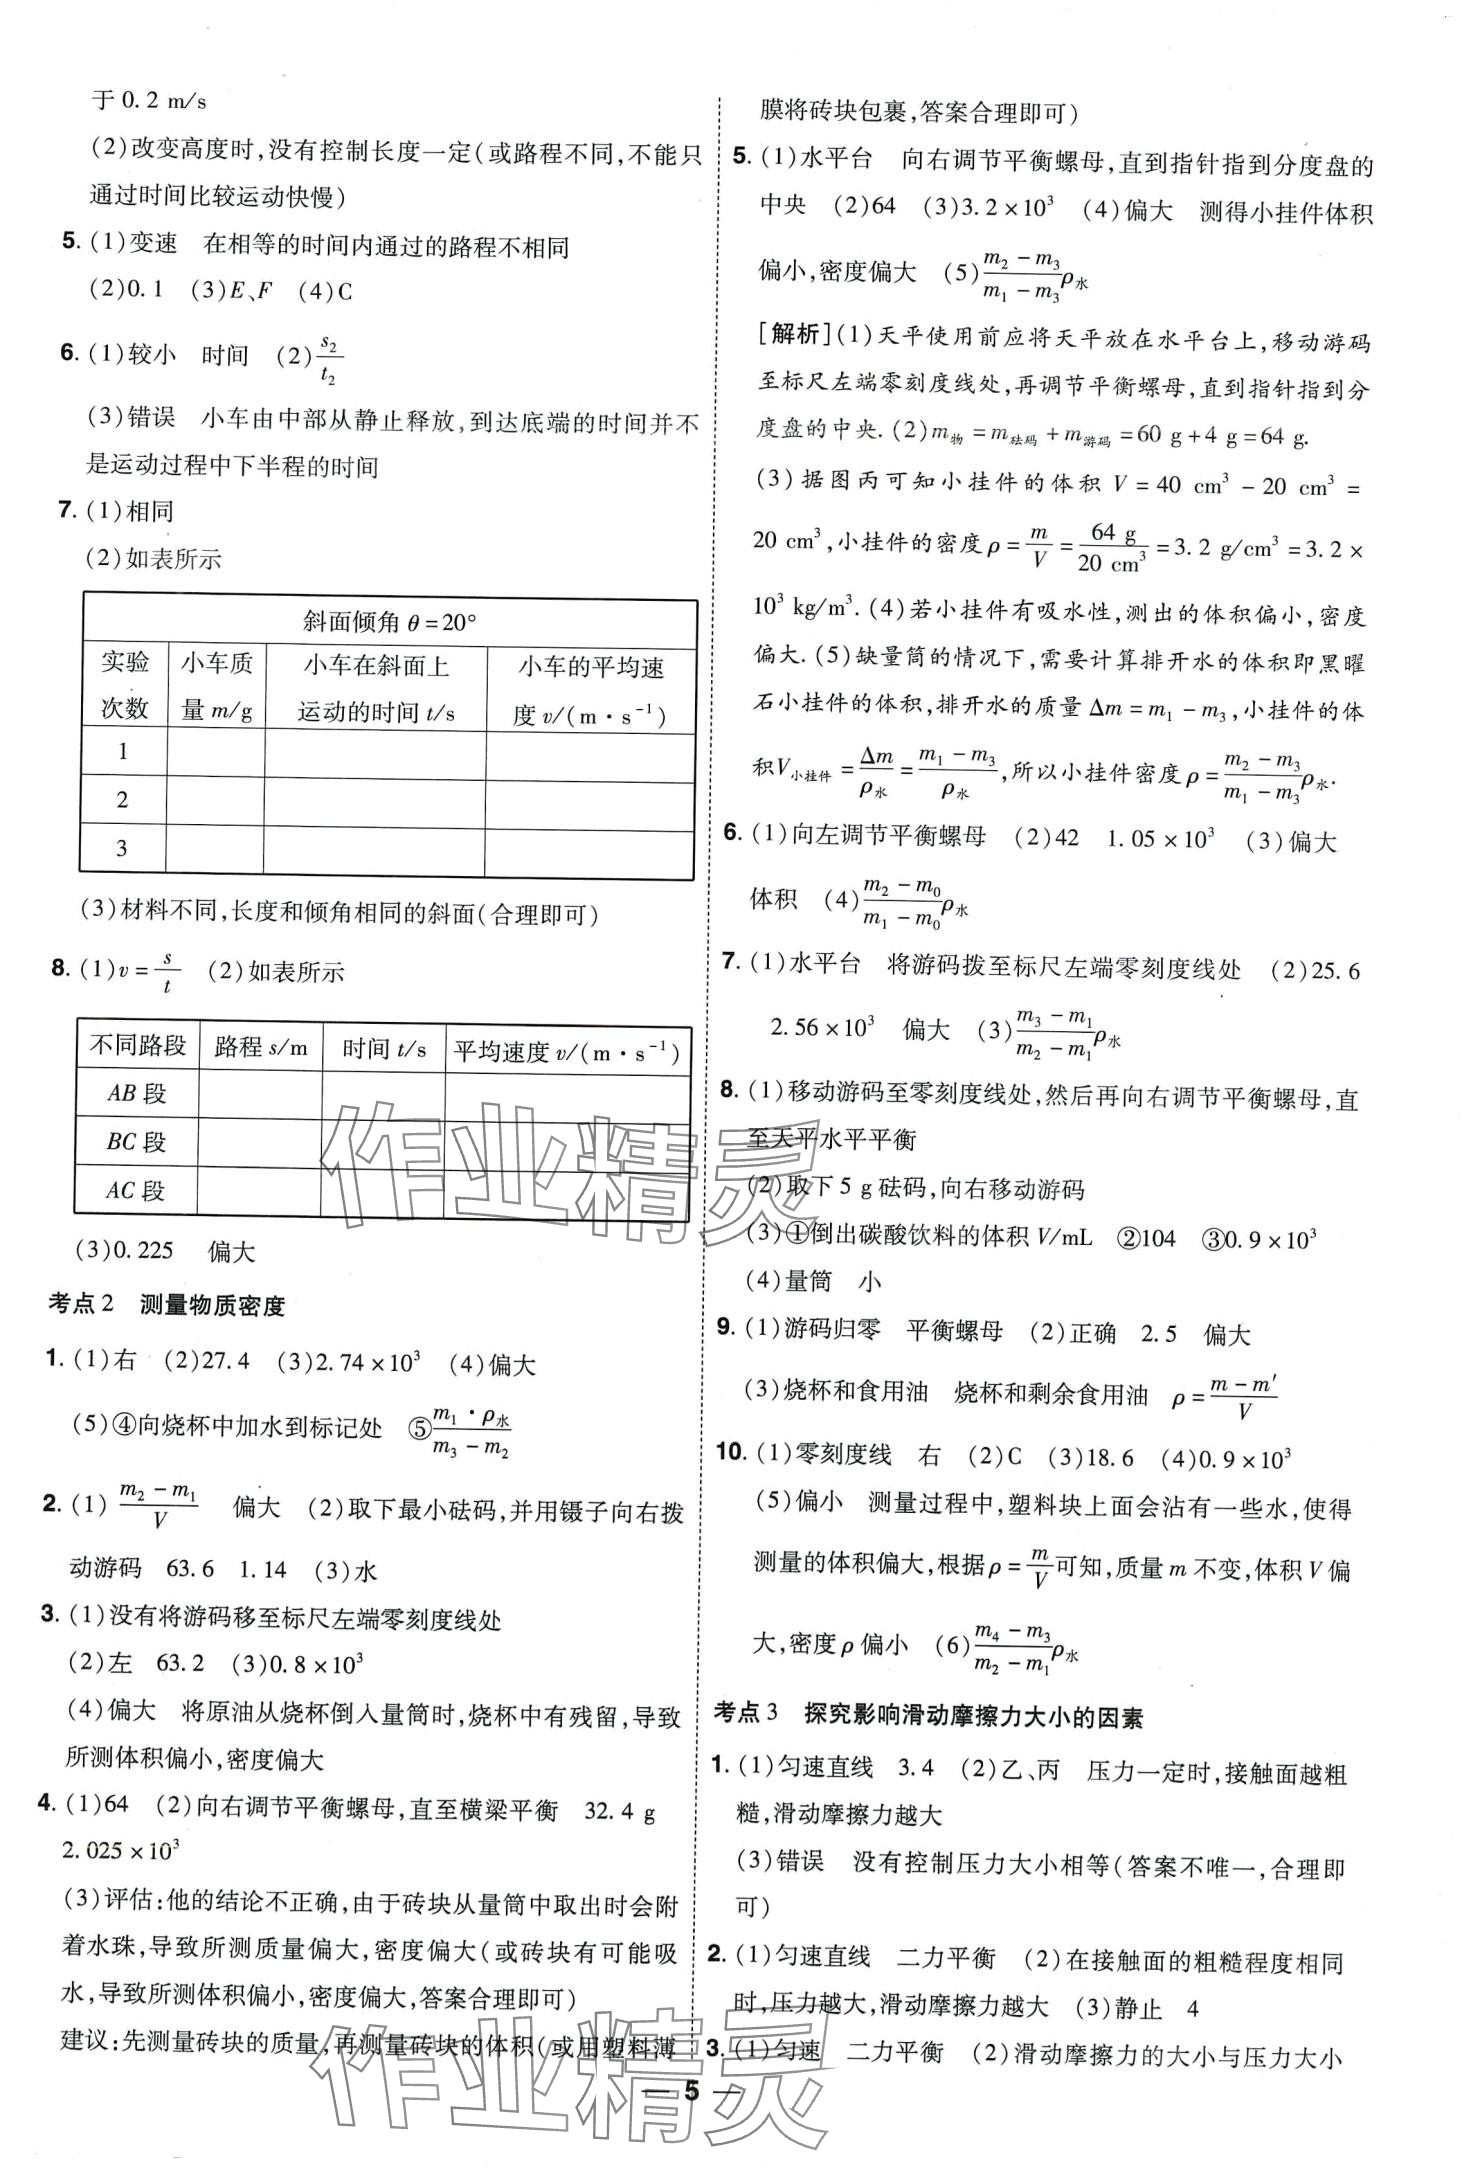 于0.2 m/s
(2)改变高度时,没有控制长度一定(或路程不同,不能只
通过时间比较运动快慢)
5. (1)变速　在相等的时间内通过的路程不相同
(2)0.1　(3)E、F　(4)C
6. (1)较小　时间　(2)s₂/t₂
(3)错误　小车由中部从静止释放,到达底端的时间并不
是运动过程中下半程的时间
7. (1)相同
(2)如表所示
斜面倾角θ=20°
实验次数　小车质量m/g　小车在斜面上运动的时间t/s　小车的平均速度v/(m·s⁻¹)
1
2
3
(3)材料不同,长度和倾角相同的斜面(合理即可)
8. (1)v=s/t　(2)如表所示
不同路段　路程s/m　时间t/s　平均速度v/(m·s⁻¹)
AB段
BC段
AC段
(3)0.225　偏大
考点2　测量物质密度
1. (1)右　(2)27.4　(3)2.74×10³　(4)偏大
(5)④向烧杯中加水到标记处　⑤(m₁·ρ水)/(m₃-m₂)
2. (1)(m₂-m₁)/V　偏大　(2)取下最小砝码,并用镊子向右拨
动游码　63.6　1.14　(3)水
3. (1)没有将游码移至标尺左端零刻度线处
(2)左　63.2　(3)0.8×10³
(4)偏大　将原油从烧杯倒入量筒时,烧杯中有残留,导致
所测体积偏小,密度偏大
4. (1)64　(2)向右调节平衡螺母,直至横梁平衡　32.4 g
2.025×10³
(3)评估:他的结论不正确,由于砖块从量筒中取出时会附
着水珠,导致所测质量偏大,密度偏大(或砖块有可能吸
水,导致所测体积偏小,密度偏大,答案合理即可)
建议:先测量砖块的质量,再测量砖块的体积(或用塑料薄
膜将砖块包裹,答案合理即可)
5. (1)水平台　向右调节平衡螺母,直到指针指到分度盘的
中央　(2)64　(3)3.2×10³　(4)偏大　测得小挂件体积
偏小,密度偏大　(5)(m₂-m₃)/(m₁-m₃)ρ水
[解析](1)天平使用前应将天平放在水平台上,移动游码
至标尺左端零刻度线处,再调节平衡螺母,直到指针指到分
度盘的中央.(2)m物=m砝码+m游码=60 g+4 g=64 g.
(3)据图丙可知小挂件的体积V=40 cm³-20 cm³=
20 cm³,小挂件的密度ρ=m/V=64 g/20 cm³=3.2 g/cm³=3.2×
10³ kg/m³.(4)若小挂件有吸水性,测出的体积偏小,密度
偏大.(5)缺量筒的情况下,需要计算排开水的体积即黑曜
石小挂件的体积,排开水的质量Δm=m₁-m₃,小挂件的体
积V小挂件=Δm/ρ水=(m₁-m₃)/ρ水,所以小挂件密度ρ=(m₂-m₃)/(m₁-m₃)ρ水.
6. (1)向左调节平衡螺母　(2)42　1.05×10³　(3)偏大
体积　(4)(m₂-m₀)/(m₁-m₀)ρ水
7. (1)水平台　将游码拨至标尺左端零刻度线处　(2)25.6
2.56×10³　偏大　(3)(m₃-m₁)/(m₂-m₁)ρ水
8. (1)移动游码至零刻度线处,然后再向右调节平衡螺母,直
至天平水平平衡
(2)取下5 g砝码,向右移动游码
(3)①倒出碳酸饮料的体积V/mL　②104　③0.9×10³
(4)量筒　小
9. (1)游码归零　平衡螺母　(2)正确　2.5　偏大
(3)烧杯和食用油　烧杯和剩余食用油　ρ=(m-m′)/V
10. (1)零刻度线　右　(2)C　(3)18.6　(4)0.9×10³
(5)偏小　测量过程中,塑料块上面会沾有一些水,使得
测量的体积偏大,根据ρ=m/V可知,质量m不变,体积V偏
大,密度ρ偏小　(6)(m₄-m₃)/(m₂-m₁)ρ水
考点3　探究影响滑动摩擦力大小的因素
1. (1)匀速直线　3.4　(2)乙、丙　压力一定时,接触面越粗
糙,滑动摩擦力越大
(3)错误　没有控制压力大小相等(答案不唯一,合理即
可)
2. (1)匀速直线　二力平衡　(2)在接触面的粗糙程度相同
时,压力越大,滑动摩擦力越大　(3)静止　4
3. (1)匀速　二力平衡　(2)滑动摩擦力的大小与压力大小
— 5 —
作业精灵
作业精灵